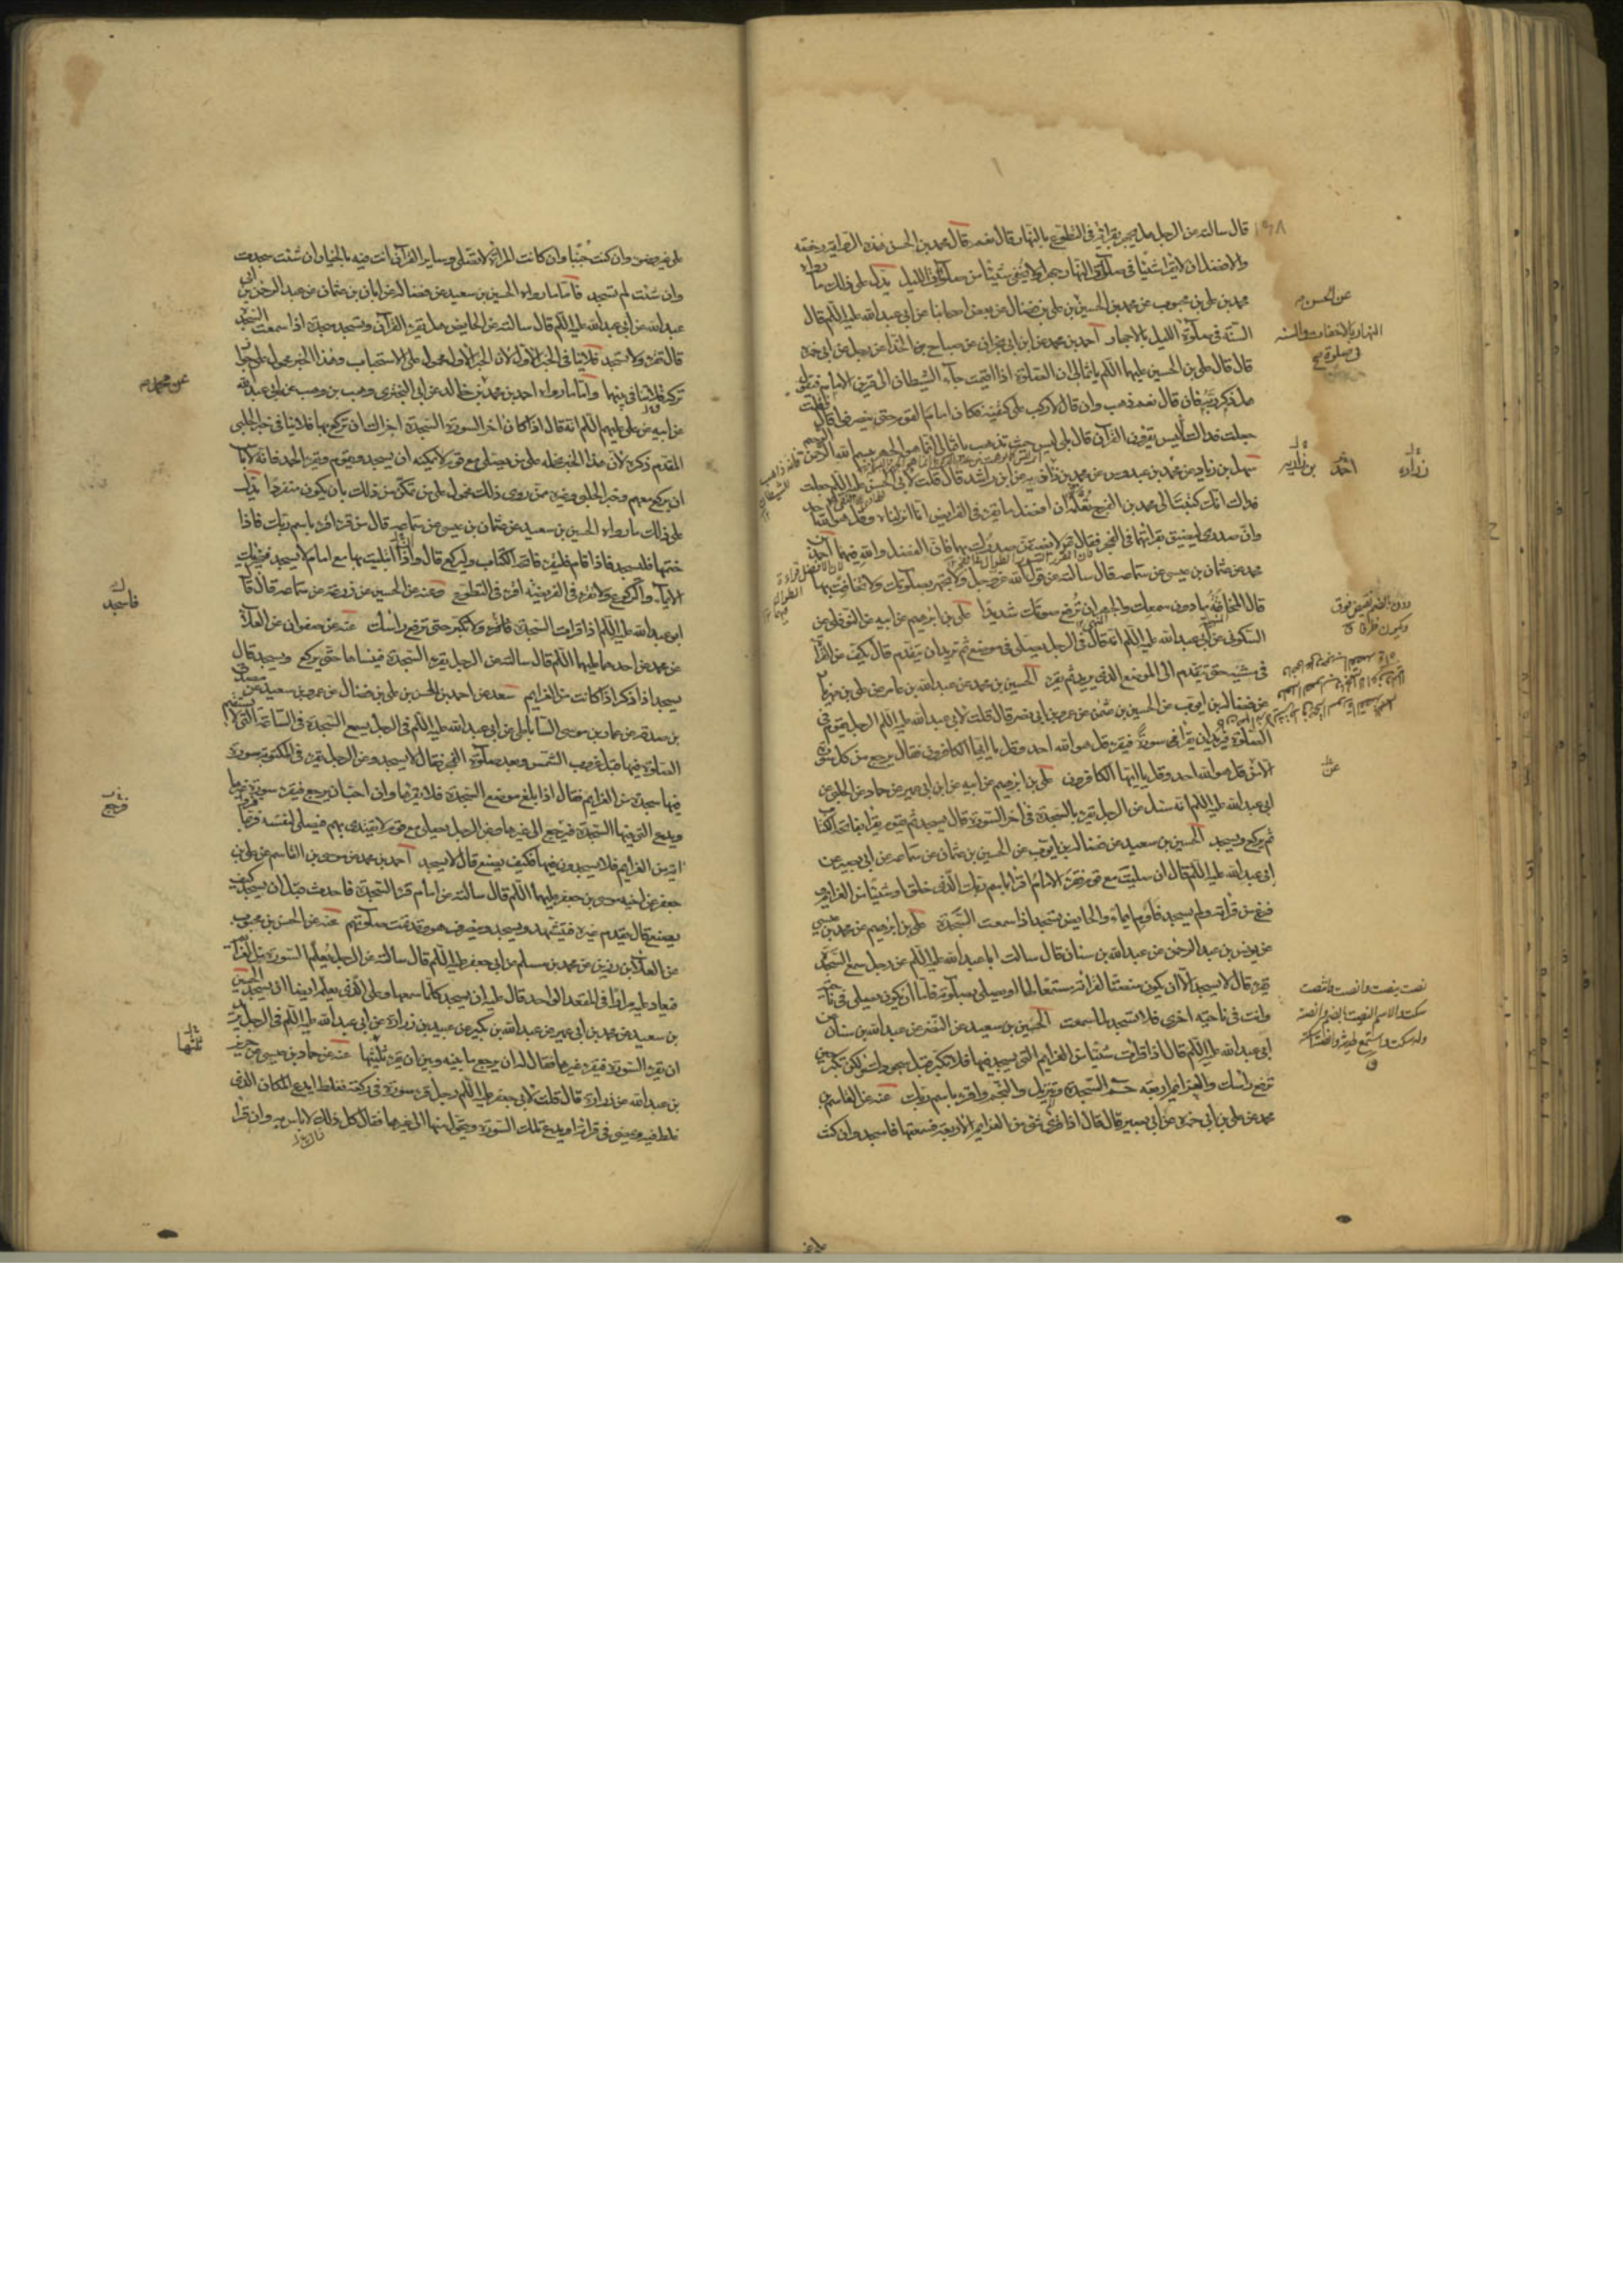 قال سالته عن الرجل هل يجهر بقراءته فى التطوع بالنهار قال نعم قال محمد بن الحسن فهذه الرواية رخصة
والافضل ان لا يقرا شيئا فى صلوة النهار جهرا ولا يخفى شيئا من صلوة الليل يدل على ذلك ما رواه
محمد بن على بن محبوب عن محمد بن الحسين بن على بن فضال عن بعض اصحابنا عن ابى عبدالله عليه السلم قال
السنة فى صلوة الليل بالاجهار احمد بن محمد عن ابن ابى نجران عن صباح بن الحذا عن رجل عن ابى حمزة
قال قال على بن الحسين عليهما السلم يا ثمالى ان الصلوة اذا اقيمت جاء الشيطان الى قرين الامام فيقول
هل ذكر ربه فان قال نعم ذهب وان قال لا ركب على كتفيه فكان امام القوم حتى ينصرفوا قال فقلت
جعلت فداك اليس يقرؤن القرآن قال بلى ليس حيث تذهب يا ثمالى انما هو الجهر ببسم الله الرحمن الرحيم
سهل بن زياد عن محمد بن عبدوس عن محمد بن زاويه عن ابن راشد قال قلت لابى الحسن عليه السلم جعلت
فداك انك كتبت الى محمد بن الفرج تعلمه ان افضل ما يقرء فى الفرايض انا انزلناه وقل هو الله احد
وان صدرى ليضيق بقرائتهما فى الفجر فقال لا يضيقن صدرك بهما فان الفضل والله فيهما احمد بن
محمد عن عثمان بن عيسى عن سماعة قال سالته عن قول الله عز وجل ولا تجهر بصلوتك ولا تخافت بها
قال المخافتة ما دون سمعك والجهر ان ترفع صوتك شديدا على بن ابرهيم عن ابيه عن النوفلى عن
السكونى عن ابى عبدالله عليه السلم انه قال فى الرجل يصلى فى موضع ثم يريد ان يتقدم قال يكف عن القراة
فى مشيه حتى يتقدم الى الموضع الذى يريد ثم يقرء الحسين بن محمد عن عبدالله بن عامر عن على بن مهزيار
عن فضالة بن ايوب عن الحسين بن عثمن عن عمرو بن ابى نصر قال قلت لابى عبدالله عليه السلم الرجل يقوم فى
الصلوة فيريد ان يقرا سورة فيقرء قل هو الله احد وقل يا ايها الكافرون فقال يرجع من كل سورة
الا من قل هو الله احد وقل يا ايها الكافرون على بن ابرهيم عن ابيه عن ابن ابى عمير عن حماد عن الحلبى عن
ابى عبدالله عليه السلم انه سئل عن الرجل يقرء بالسجدة فى اخر السورة قال يسجد ثم يقوم يقرا بفاتحة الكتاب
ثم يركع ويسجد الحسين بن سعيد عن فضالة بن ايوب عن الحسين بن عثمان عن سماعة عن ابى بصير عن
ابى عبدالله عليه السلم قال ان صليت مع قوم فقرء الامام اقرا باسم ربك الذى خلق او شيئا من العزايم و
فرغ من قرائته ولم يسجد فاوم ايماء والحايض تسجد اذا سمعت السجدة على بن ابرهيم عن محمد بن عيسى
عن يونس بن عبد الرحمن عن عبدالله بن سنان قال سالت ابا عبدالله عليه السلم عن رجل سمع السجدة
تقرء قال لا يسجد الا ان يكون منصتا لقرائته مستمعا لها او يصلى بصلوته فاما ان يكون يصلى فى ناحية
وانت فى ناحية اخرى فلا تسجد لما سمعت الحسين بن سعيد عن النضر عن عبدالله بن سنان عن
ابى عبدالله عليه السلم قال اذا قرأت شيئا من العزايم التى يسجد فيها فلا تكبر قبل سجودك ولكن تكبر حين
ترفع رأسك والعزايم اربعة حم السجدة وتنزيل والنجم واقرء باسم ربك عنه عن القاسم بن
محمد عن على بن ابى حمزة عن ابى بصير قال قال اذا قرئ شئ من العزايم الاربعة فسمعتها فاسجد وان كنت
عن الحسن
زرارة
احمد
بن زاويه
عن
على غير وضوء وان كنت جنبا وان كانت المراة لا تصلى وساير القرآن انت فيه بالخيار ان شئت سجدت
وان شئت لم تسجد فاما ما رواه الحسين بن سعيد عن فضالة عن ابان بن عثمان عن عبد الرحمن بن ابى
عبدالله عن ابى عبدالله عليه السلم قال سالته عن الحايض هل تقرء القرآن وتسجد سجدة اذا سمعت السجدة
قال تقرء ولا تسجد فلا ينافى الخبر الاول لان الخبر الاول محمول على الاستحباب وهذا الخبر محمول على جواز
تركه فلا تنافى بينهما واما ما رواه احمد بن محمد بن خالد عن ابى البخترى وهب بن وهب عن ابى عبدالله
عن ابيه عن على عليهم السلم انه قال اذا كان اخر السورة السجدة اجزاك ان تركع بها فلا ينافى خبر الحلبى
المقدم ذكره لان هذا الخبر نحمله على من يصلى مع قوم لا يمكنه ان يسجد ويقوم ويقرء الحمد فانه لا باس
ان يركع معهم وخبر الحلبى وغيره ممن روى ذلك محمول على من تمكن من ذلك بان يكون منفردا يدل
على ذلك ما رواه الحسين بن سعيد عن عثمان بن عيسى عن سماعة قال من قرء اقرء باسم ربك فاذا
ختمها فليسجد فاذا قام فليقرء فاتحة الكتاب وليركع قال واذا ابتليت بها مع امام لا يسجد فيجزيك
الايماء والركوع ولا تقرء فى الفريضة اقرء فى التطوع وعنه عن الحسين عن زرعة عن سماعة قال قال
ابو عبدالله عليه السلم اذا قرات السجدة فاسجد ولا تكبر حتى ترفع رأسك عنه عن صفوان عن العلاء
عن محمد عن احدهما عليهما السلم قال سالته عن الرجل يقرء السجدة فينساها حتى يركع ويسجد قال
يسجد اذا ذكر اذا كانت من العزايم سعد عن احمد بن الحسن بن على بن فضال عن عمرو بن سعيد عن مصدق
بن صدقة عن عمار بن موسى الساباطى عن ابى عبدالله عليه السلم فى الرجل يسمع السجدة فى الساعة التى لا تستقيم
الصلوة فيها قبل غروب الشمس وبعد صلوة الفجر فقال لا يسجد وعن الرجل يقرء فى المكتوبة سورة
فيها سجدة من العزايم فقال اذا بلغ موضع السجدة فلا يقرءها وان احب ان يرجع فيقرء سورة غيرها
ويدع التى فيها السجدة فيرجع الى غيرها وعن الرجل يصلى مع قوم لا يقتدى بهم فيصلى لنفسه فربما قرؤا
اية من العزايم فلا يسجدون فيها فكيف يصنع قال لا يسجد احمد بن محمد عن موسى بن القاسم عن على بن
جعفر عن اخيه موسى بن جعفر عليهما السلم قال سالته عن امام قرء السجدة فاحدث قبل ان يسجد كيف
يصنع قال يقدم غيره فيتشهد ويسجد وينصرف هو وقد تمت صلوتهم عنه عن الحسن بن محبوب
عن العلاء بن رزين عن محمد بن مسلم عن ابى جعفر عليه السلم قال سالته عن الرجل يعلم السورة من العزائم
فيعاد عليه مرارا فى المقعد الواحد قال عليه ان يسجد كلما سمعها وعلى الذى يعلم ايضا ان يسجد الحسين
بن سعيد عن محمد بن ابى عمير عن عبدالله بن بكير عن عبيد بن زرارة عن ابى عبدالله عليه السلم فى الرجل يريد
ان يقرء السورة فيقرء غيرها فقال له ان يرجع ما بينه وبين ان يقرء ثلثيها عنه عن حماد بن عيسى عن حريز
بن عبدالله عن زرارة قال قلت لابى جعفر عليه السلم رجل قرء سورة فى ركعة فغلط ايدع المكان الذى
غلط فيه ويمضى فى قرائته او يدع تلك السورة ويتحول منها الى غيرها فقال كل ذلك لا باس به وان قرا
عن محمد
فاسجد
فيرجع
ثلثيها